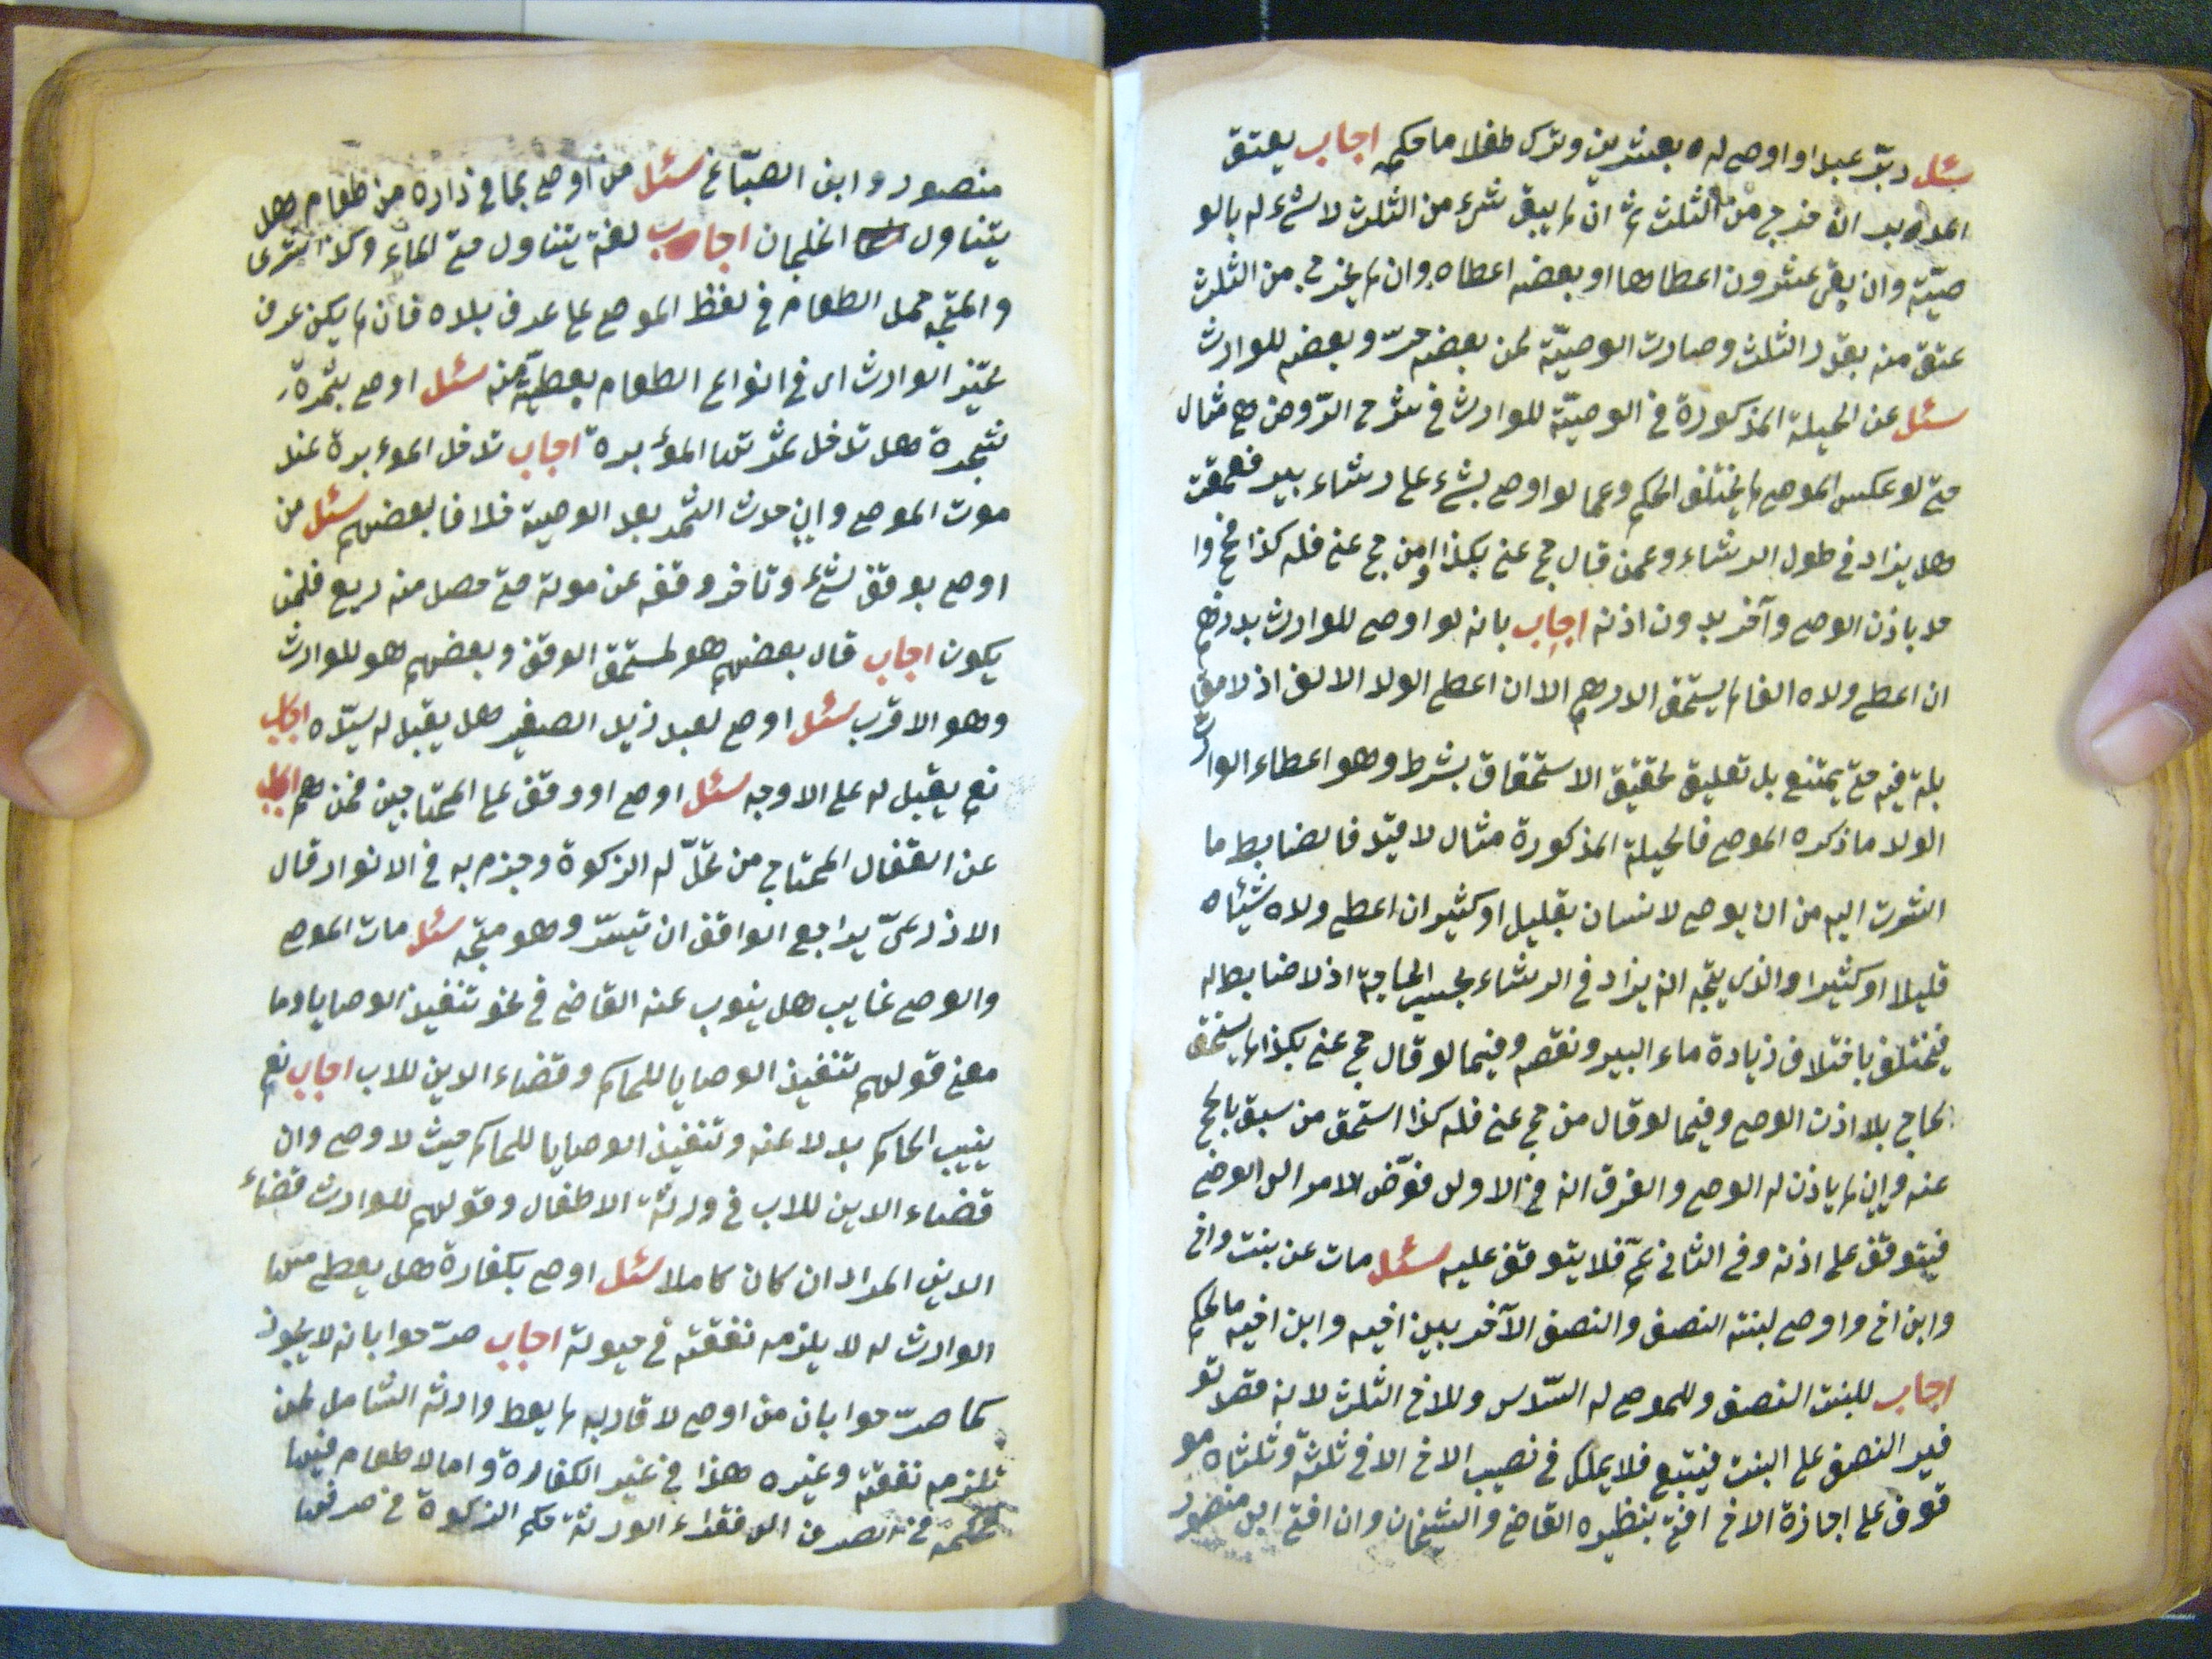 سئل دبّر عبدا واوصى له بعشرين وترك طفلا ما حكمه اجاب يعتق
المدبر ان خرج من الثلث ثم ان لم يبق شىء من الثلث لا شىء له بالو
صيّة وان بقى عشرون اعطاها او بعضه اعطاه وان لم يخرج من الثلث
عتق منه بقدر الثلث وصارت الوصيّة لمن بعضه حرّ وبعضه للوارث
سئل عن الحيلة المذكورة فى الوصيّة للوارث فى شرح الروض هى مثال
حتى لو عكس الموصى لم يختلف الحكم وعما لو اوصى بشىء على رشاء بير فعمقت
هل يزاد فى طول الرشاء وعمن قال حج عنى بكذا او من حج عنى فله كذا فحج وا
حد باذن الوصى وآخر بدون اذنه اجاب بانه لو اوصى للوارث بدرهم
ان اعطى ولده الفا لم يستحق الدرهم الا ان اعطى الولد الالف اذ لا مقا
بلة فيه حتى يمتنع بل تعليق لحقيق الاستحقاق بشرط وهو اعطاء الوارث
الولد ما ذكره الموصى فالحيلة المذكورة مثال لا قيد فالضابط ما
اشرت اليه من ان يوصى لانسان بقليل او كثير ان اعطى ولده شيئاه
قليلا او كثيرا والذى يتجه انه يزاد فى الرشاء بحسب الحاجة اذ لا ضابط له
فيختلف باختلاف زيادة ماء البير ونقصه وفيما لو قال حج عنى بكذا لم يستحق
الحاج بلا اذن الوصى وفيما لو قال من حج عنى فله كذا استحق من سبق بالحج
عنه وإن لم ياذن له الوصى والفرق انه فى الاولى فوّض الامر الى الوصى
فيتوقف على اذنه وفى الثانى عمّ فلا يتوقف عليه سئل مات عن بنت واخ
وابن اخ واوصى لبنته النصف والنصف الآخر بين اخيه وابن اخيه ما الحكم
اجاب للبنت النصف وللموصى له السّدس وللاخ الثلث لانه قصد تو
فير النصف على البنت فيتبع فلا يملك فى نصيب الاخ الا فى ثلثه وثلثاه مو
قوف على اجازة الاخ افتى بنظيره القاضى والشيخان وان افتى ابن منصور
منصور وابن الصبّاغ سئل من اوصى بما فى داره من طعام هل
يتناول الخلجان اجاب لغة يتناول حتى الماء وكلا اشترى
والمتجه حمل الطعام فى لفظ الموصى على عرف بلده فان لم يكن عرف
تخيّر الوارث اى فى انواع الطعام يعطيه منه سئل اوصى بثمرة
شجرة هل تدخل ثمرتها المؤبرة اجاب تدخل المؤبرة عند
موت الموصى وإن حدث الثمر بعد الوصية خلافا لبعضهم سئل من
اوصى بوقف شىء وتاخر وقفه عن موته حتى حصل منه ريع فلمن
يكون اجاب قال بعضهم هو لمستحق الوقف وبعضهم هو للوارث
وهو الاقرب سئل اوصى لعبد زيد الصغير هل يقبل له سيّده اجاب
نعم يقبل له على الاوجه سئل اوصى او وقف على المحتاجين فمن هم اجاب
عن القفال المحتاج من تحلّ له الزكوة وجزم به فى الانوار قال
الاذرعىّ يراجع الواقف ان تيسّر وهو متجه سئل مات الموصى
والوصى غايب هل ينوب عنه القاضى فى نحو تنفيذ الوصايا وما
معنى قولهم تنفيذ الوصايا للحاكم وقضاء الدين للاب اجاب نعم
ينيب الحاكم بدلا عنه وتنفيذ الوصايا للحاكم حيث لا وصى وان
قضاء الدين للاب فى ورثة الاطفال وقولهم للوارث قضاء
الدين المراد ان كان كاملا سئل اوصى بكفارة هل يعطى منها
الوارث له لا يلزمه نفقته فى حيوته اجاب صرّحوا بانه لا يجوز
كما صرّحوا بان من اوصى لاقاربه لم يعط وارثه الشامل لمن
تلزمه نفقته وغيره هذا فى غير الكفارة واما الاطعام فيها
فحكمه فى الصرف الى فقراء الورثة حكم الزكوة فى صرفها